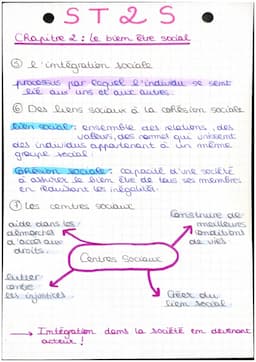 • ST2S •
Chapitre 2 : le bien être social
⑤ l'intégration sociale
processus par lequel l'individu se sent
lié aux uns et aux autres.
⑥ Des liens sociaux à la cohésion sociale
lien social : ensemble des relations, des
valeurs, des normes qui unissent
des individus appartenant à un même
groupe social.
cohésion sociale : capacité d'une société
à assurer le bien être de tous ses membres
en réduisant les inégalités.
⑦ les centres sociaux
aide dans les
démarches
d'accès aux
droits.
Construire de
meilleures
conditions
de vies
Centres Sociaux
lutter
contre
les injustices
Créer du
lien social
→ Intégration dans la société en devenant
acteur !